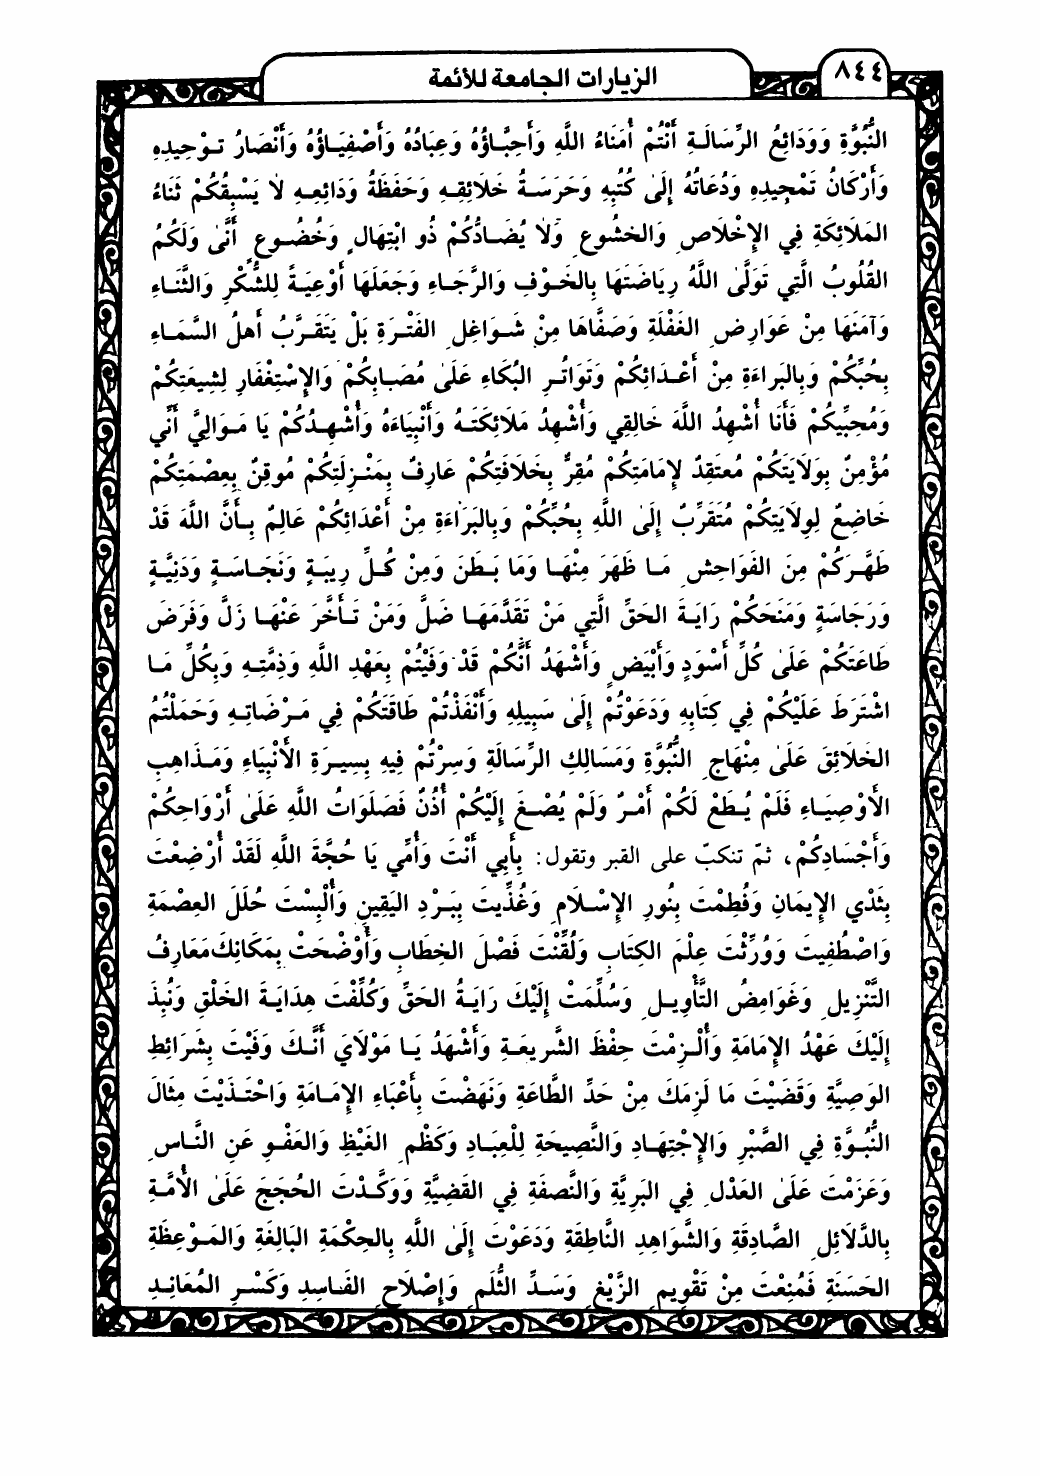 ٨٤٤
الزيارات الجامعة للأئمة
النُّبُوَّةِ وَوَدَائِعُ الرِّسَالَـةِ أَنْتُمْ أُمَنَاءُ اللَّهِ وَأَحِبَّـاؤُهُ وَعِبَادُهُ وَأَصْفِيَـاؤُهُ وَأَنْصَارُ تَـوْحِيدِهِ
وَأَرْكَانُ تَمْجِيدِهِ وَدُعَاتُهُ إِلَىٰ كُتُبِهِ وَحَرَسَـةُ خَلَائِقِـهِ وَحَفَظَةُ وَدَائِعِـهِ لَا يَسْبِقُكُمْ ثَنَاءُ
المَلَائِكَةِ فِي الإِخْلَاصِ وَالخُشُوعِ وَلَا يُضَـادُّكُمْ ذُو ابْتِهَالٍ وَخُضُـوعٍ أَنَّىٰ وَلَكُمُ
القُلُوبُ الَّتِي تَوَلَّىٰ اللَّهُ رِيَاضَتَهَا بِالخَـوْفِ وَالرَّجَـاءِ وَجَعَلَهَا أَوْعِيَـةً لِلشُّكْرِ وَالثَّنَـاءِ
وَآمَنَهَا مِنْ عَوَارِضِ الغَفْلَةِ وَصَفَّاهَا مِنْ شَـوَاغِلِ الفَتْـرَةِ بَلْ يَتَقَـرَّبُ أَهلُ السَّمَـاءِ
بِحُبِّكُمْ وَبِالبَراءَةِ مِنْ أَعْـدَائِكُمْ وَتَوَاتُـرِ البُكَاءِ عَلَىٰ مُصَـابِكُمْ وَالإِسْتِغْفَارِ لِشِيعَتِكُمْ
وَمُحِبِّيكُمْ فَأَنَا أُشْهِدُ اللَّهَ خَالِقِي وَأُشْهِدُ مَلَائِكَتَـهُ وَأَنْبِيَاءَهُ وَأُشْهِـدُكُمْ يَا مَـوَالِيَّ أَنِّي
مُؤْمِنٌ بِوَلَايَتِكُمْ مُعتَقِدٌ لإِمَامَتِكُمْ مُقِرٌّ بِخِلَافَتِكُمْ عَارِفٌ بِمَنْـزِلَتِكُمْ مُوقِنٌ بِعِصْمَتِكُمْ
خَاضِعٌ لِوِلَايَتِكُمْ مُتَقَرِّبٌ إِلَىٰ اللَّهِ بِحُبِّكُمْ وَبِالبَرَاءَةِ مِنْ أَعْدَائِكُمْ عَالِمٌ بِـأَنَّ اللَّهَ قَدْ
طَهَّـرَكُمْ مِنَ الفَوَاحِشِ مَـا ظَهَرَ مِنْهَـا وَمَا بَـطَنَ وَمِنْ كُـلِّ رِيبَـةٍ وَنَجَـاسَـةٍ وَدَنِيَّـةٍ
وَرَجَاسَةٍ وَمَنَحَكُمْ رَايَـةَ الحَقِّ الَّتِي مَنْ تَقَدَّمَهَـا ضَلَّ وَمَنْ تَـأَخَّرَ عَنْهَـا زَلَّ وَفَرَضَ
طَاعَتَكُمْ عَلَىٰ كُلِّ أَسْوَدٍ وَأَبْيَضٍ وَأَشْهَدُ أَنَّكُمْ قَدْ وَفَيْتُمْ بِعَهْدِ اللَّهِ وَذِمَّتِـهِ وَبِكُلِّ مَـا
اشْتَرَطَ عَلَيْكُمْ فِي كِتَابِهِ وَدَعَوْتُمْ إِلَىٰ سَبِيلِهِ وَأَنْفَذْتُمْ طَاقَتَكُمْ فِي مَـرْضَاتِـهِ وَحَمَلْتُمُ
الخَلَائِقَ عَلَىٰ مِنْهَاجِ النُّبُوَّةِ وَمَسَالِكِ الرِّسَالَةِ وَسِرْتُمْ فِيهِ بِسِيـرَةِ الأَنْبِيَاءِ وَمَـذَاهِبِ
الأَوْصِيَـاءِ فَلَمْ يُـطَعْ لَكُمْ أَمْـرٌ وَلَمْ يُصْـغَ إِلَيْكُمْ أُذُنٌ فَصَلَوَاتُ اللَّهِ عَلَىٰ أَرْوَاحِكُمْ
وَأَجْسَادِكُمْ، ثمّ تنكبّ على القبر وتقول: بِأَبِي أَنْتَ وَأُمِّي يَا حُجَّةَ اللَّهِ لَقَدْ أُرْضِعْتَ
بِثَدْيِ الإِيمَانِ وَفُطِمْتَ بِنُورِ الإِسْـلَامِ وَغُذِّيتَ بِبَـرْدِ اليَقِينِ وَأُلْبِسْتَ حُلَلَ العِصْمَةِ
وَاصْطُفِيتَ وَوُرِّثْتَ عِلْمَ الكِتَابِ وَلُقِّنْتَ فَصْلَ الخِطَابِ وَأُوْضِحَتْ بِمَكَانِكَ مَعَارِفُ
التَّنْزِيلِ وَغَوَامِضُ التَّأْوِيـلِ وَسُلِّمَتْ إِلَيْكَ رَايَـةُ الحَقِّ وَكُلِّفْتَ هِدَايَـةَ الخَلْقِ وَنُبِذَ
إِلَيْكَ عَهْدُ الإِمَامَةِ وَأُلْـزِمْتَ حِفْظَ الشَّرِيعَـةِ وَأَشْهَدُ يَـا مَوْلَايَ أَنَّـكَ وَفَيْتَ بِشَرَائِطِ
الوَصِيَّةِ وَقَضَيْتَ مَا لَزِمَكَ مِنْ حَدِّ الطَّاعَةِ وَنَهَضْتَ بِأَعْبَاءِ الإِمَـامَةِ وَاحْتَـذَيْتَ مِثَالَ
النُّبُـوَّةِ فِي الصَّبْرِ وَالإِجْتِهَـادِ وَالنَّصِيحَةِ لِلْعِبَـادِ وَكَظْمِ الغَيْظِ وَالعَفْـوِ عَنِ النَّـاسِ
وَعَزَمْتَ عَلَىٰ العَدْلِ فِي البَرِيَّةِ وَالنَّصَفَةِ فِي القَضِيَّةِ وَوَكَّـدْتَ الحُجَجَ عَلَىٰ الأُمَّـةِ
بِالدَّلَائِلِ الصَّادِقَةِ وَالشَّوَاهِدِ النَّاطِقَةِ وَدَعَوْتَ إِلَىٰ اللَّهِ بِالحِكْمَةِ البَالِغَةِ وَالمَـوْعِظَةِ
الحَسَنَةِ فَمُنِعْتَ مِنْ تَقْوِيمِ الزَّيْغِ وَسَـدِّ الثُّلَمِ وَإِصْلَاحِ الفَـاسِدِ وَكَسْـرِ المُعَانِـدِ